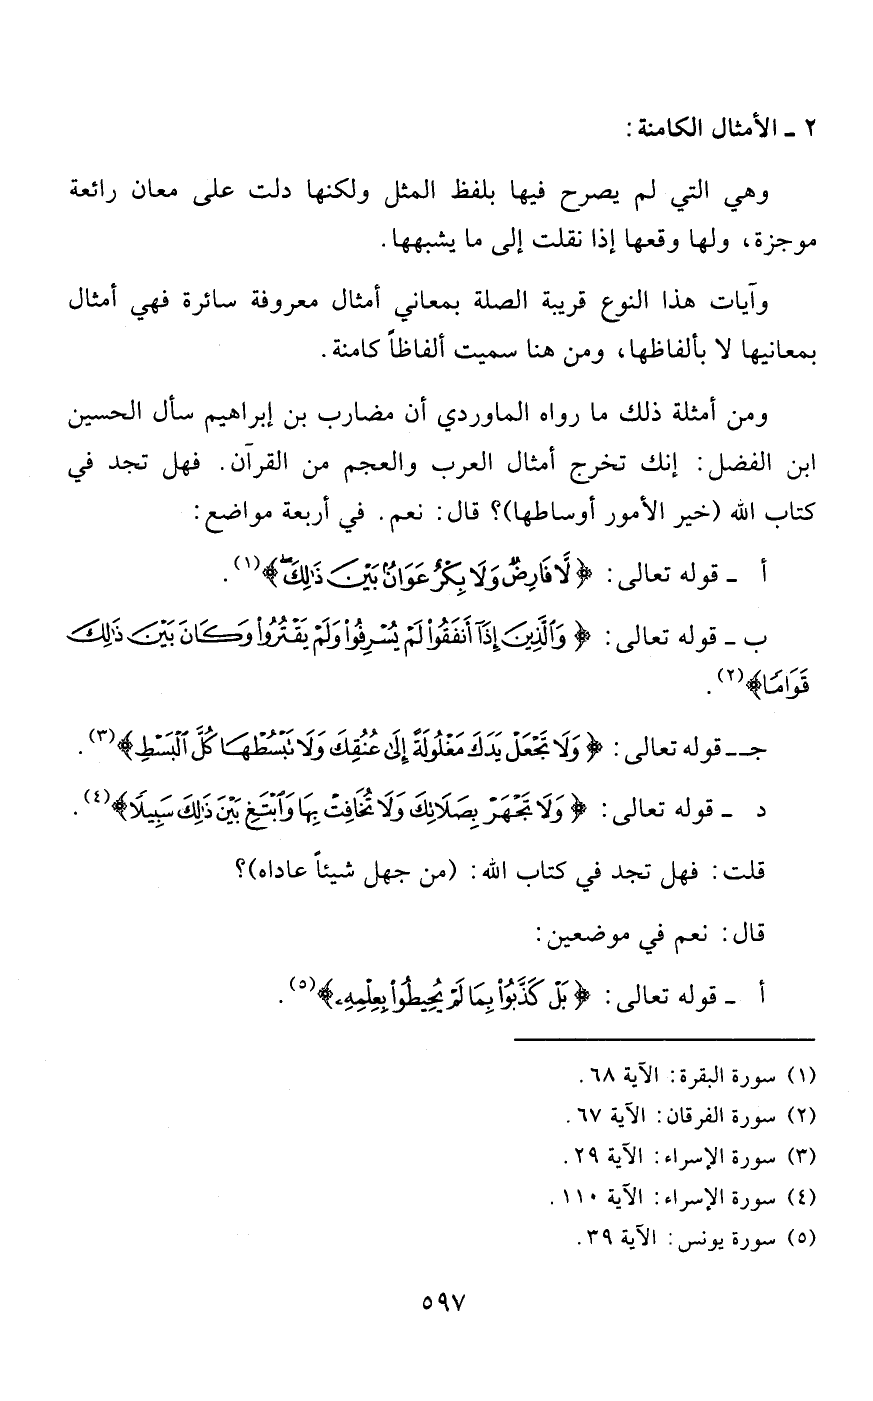 ٢ ـ الأمثال الكامنة :
وهي التي لم يصرح فيها بلفظ المثل ولكنها دلت على معان رائعة
موجزة، ولها وقعها إذا نقلت إلى ما يشبهها .
وآيات هذا النوع قريبة الصلة بمعاني أمثال معروفة سائرة فهي أمثال
بمعانيها لا بألفاظها، ومن هنا سميت ألفاظاً كامنة .
ومن أمثلة ذلك ما رواه الماوردي أن مضارب بن إبراهيم سأل الحسين
ابن الفضل : إنك تخرج أمثال العرب والعجم من القرآن . فهل تجد في
كتاب الله (خير الأمور أوساطها)؟ قال : نعم . في أربعة مواضع :
أ ـ قوله تعالى : ﴿ لَّا فَارِضٌ وَلَا بِكْرٌ عَوَانٌۢ بَيْنَ ذَٰلِكَۖ ﴾(١) .
ب ـ قوله تعالى : ﴿ وَٱلَّذِينَ إِذَآ أَنفَقُوا۟ لَمْ يُسْرِفُوا۟ وَلَمْ يَقْتُرُوا۟ وَكَانَ بَيْنَ ذَٰلِكَ
قَوَامًا﴾(٢) .
جـ ـ قوله تعالى : ﴿ وَلَا تَجْعَلْ يَدَكَ مَغْلُولَةً إِلَىٰ عُنُقِكَ وَلَا تَبْسُطْهَا كُلَّ ٱلْبَسْطِ ﴾(٣) .
د ـ قوله تعالى : ﴿ وَلَا تَجْهَرْ بِصَلَاتِكَ وَلَا تُخَافِتْ بِهَا وَٱبْتَغِ بَيْنَ ذَٰلِكَ سَبِيلًا ﴾(٤) .
قلت : فهل تجد في كتاب الله : (من جهل شيئاً عاداه)؟
قال : نعم في موضعين :
أ ـ قوله تعالى : ﴿ بَلْ كَذَّبُوا۟ بِمَا لَمْ يُحِيطُوا۟ بِعِلْمِهِۦ ﴾(٥) .
(١) سورة البقرة : الآية ٦٨ .
(٢) سورة الفرقان : الآية ٦٧ .
(٣) سورة الإسراء : الآية ٢٩ .
(٤) سورة الإسراء : الآية ١١٠ .
(٥) سورة يونس : الآية ٣٩ .
٥٩٧